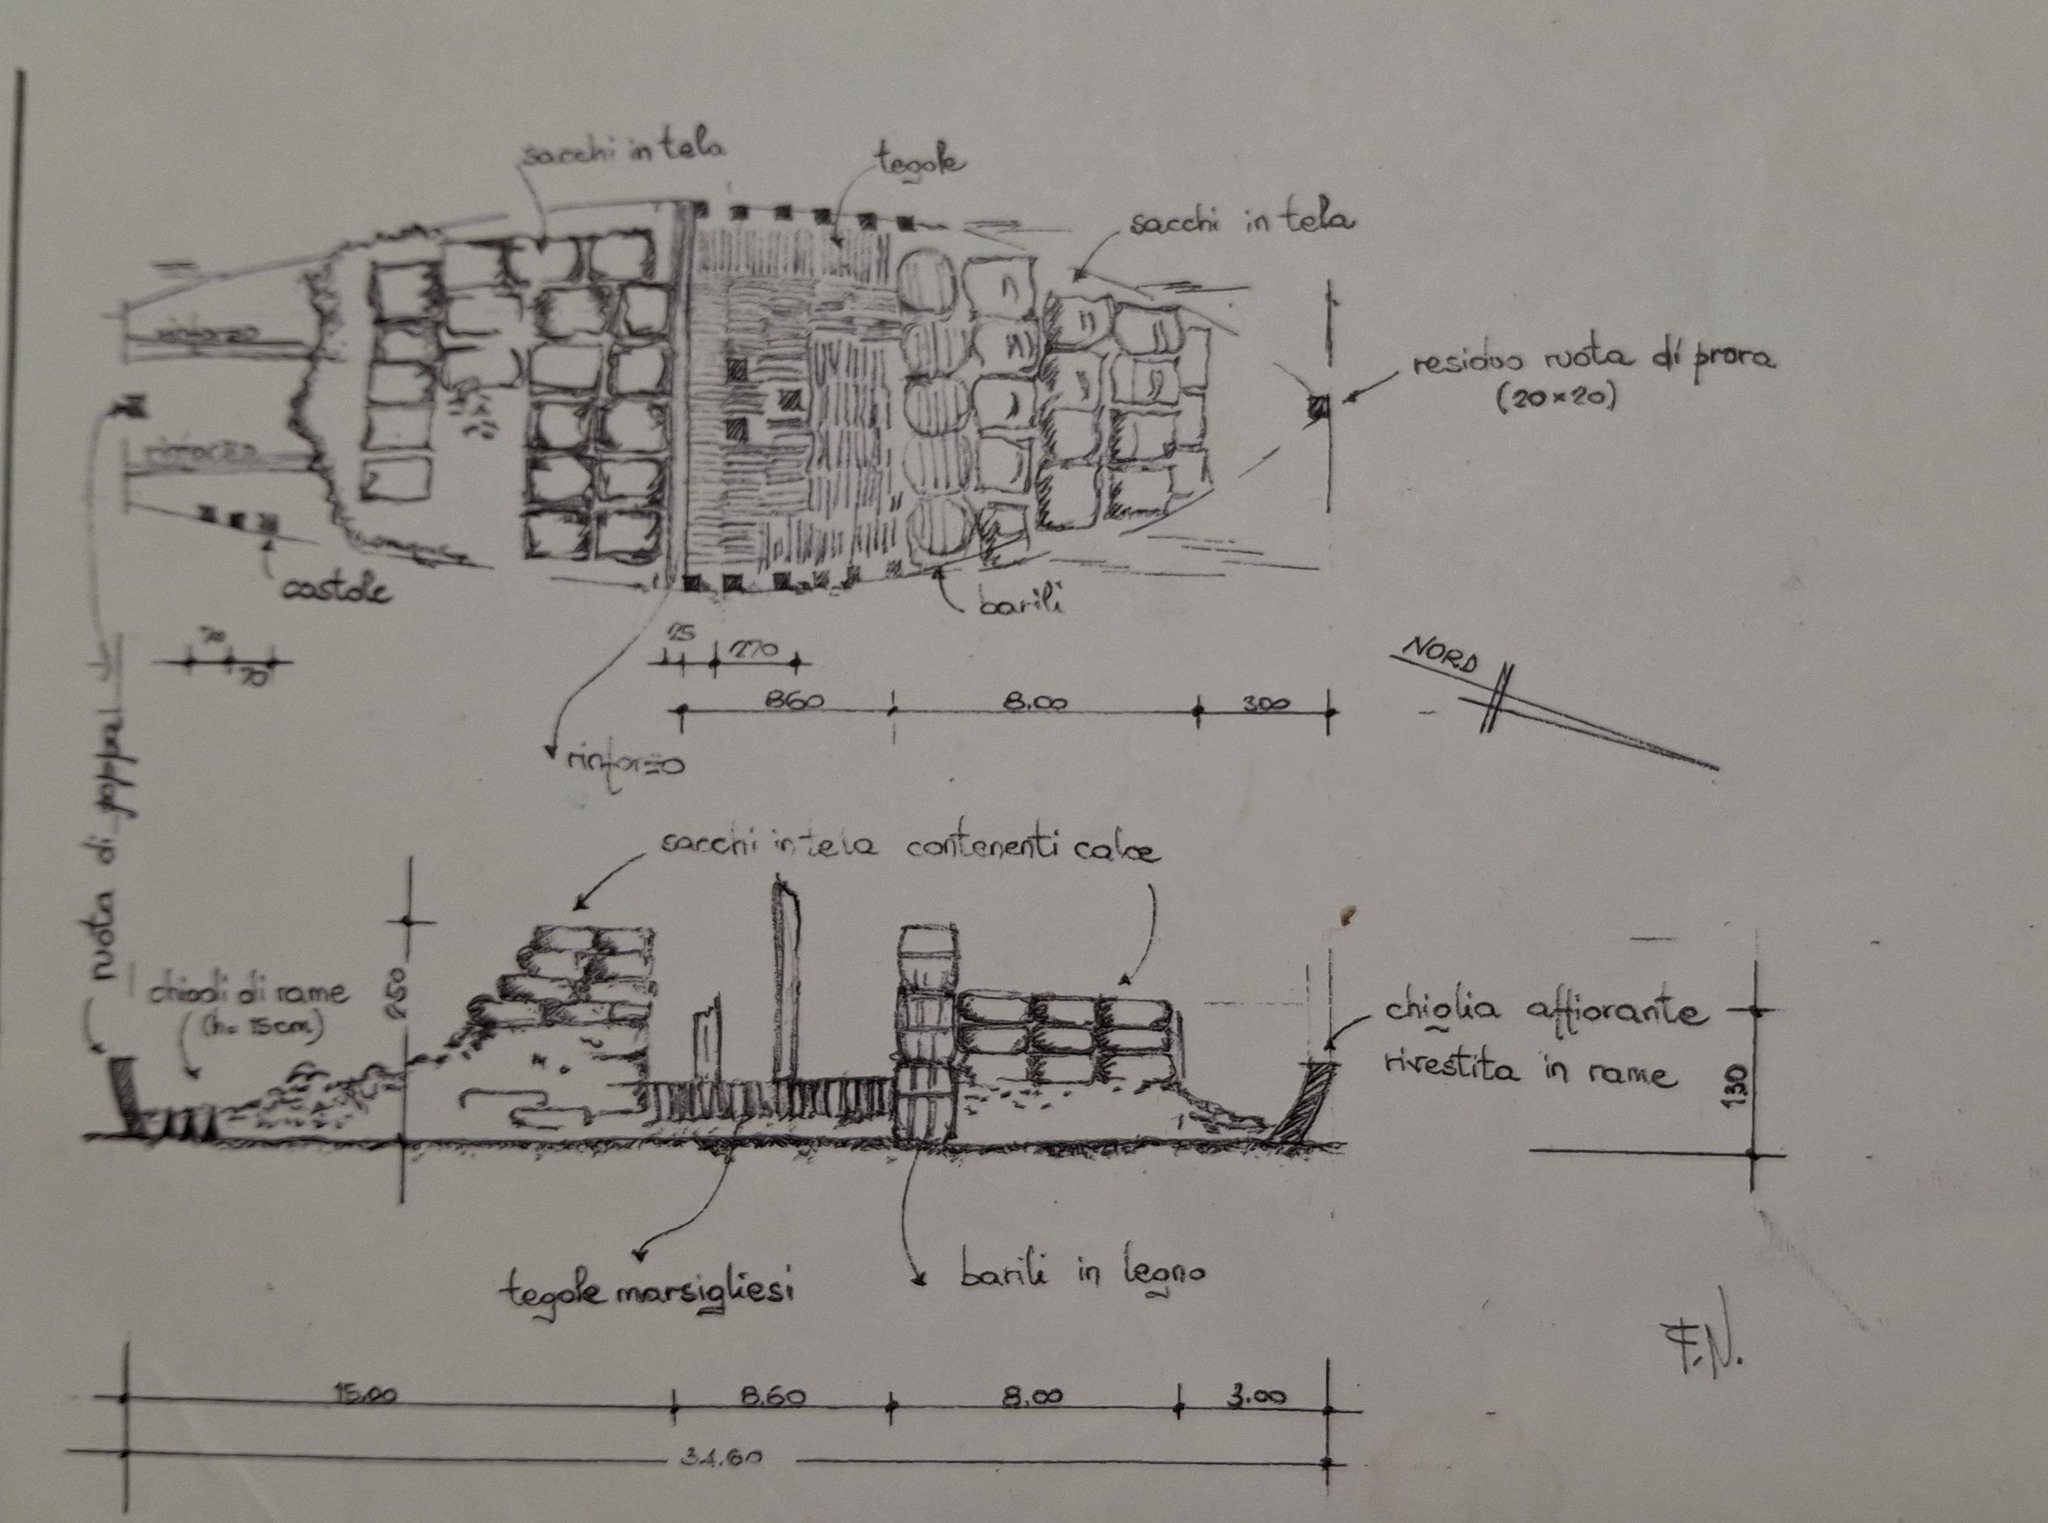 sacchi in tela
tegole
sacchi in tela
rinforzo
residuo ruota di prora
(20×20)
rinforzo
costole
barili
70
70
25
270
860
8.00
300
NORD
rinforzo
ruota di poppa
sacchi in tela contenenti calce
chiodi di rame
(h= 15cm)
250
chiglia affiorante
rivestita in rame
130
tegole marsigliesi
barili in legno
F.N.
15.00
8.60
8.00
3.00
34.60